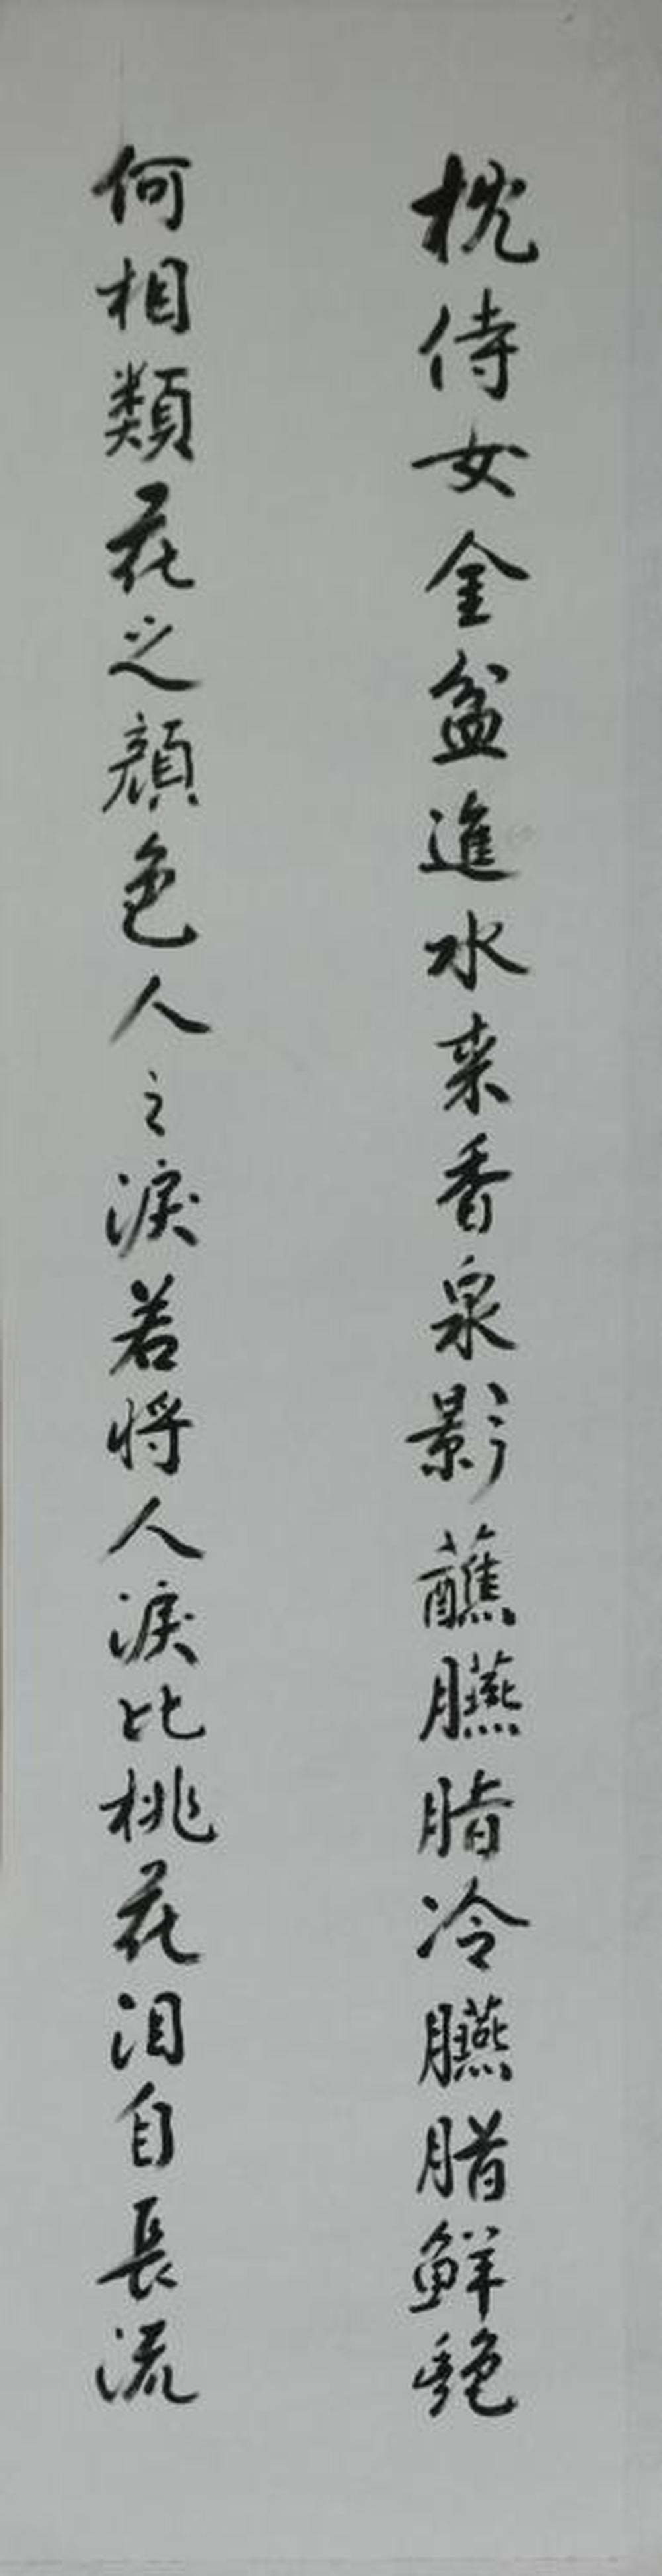 枕侍女金盆進水来香泉影蘸臙脂冷臙腊鮮艶
何相類花之顔色人之淚若将人淚比桃花泪自長流